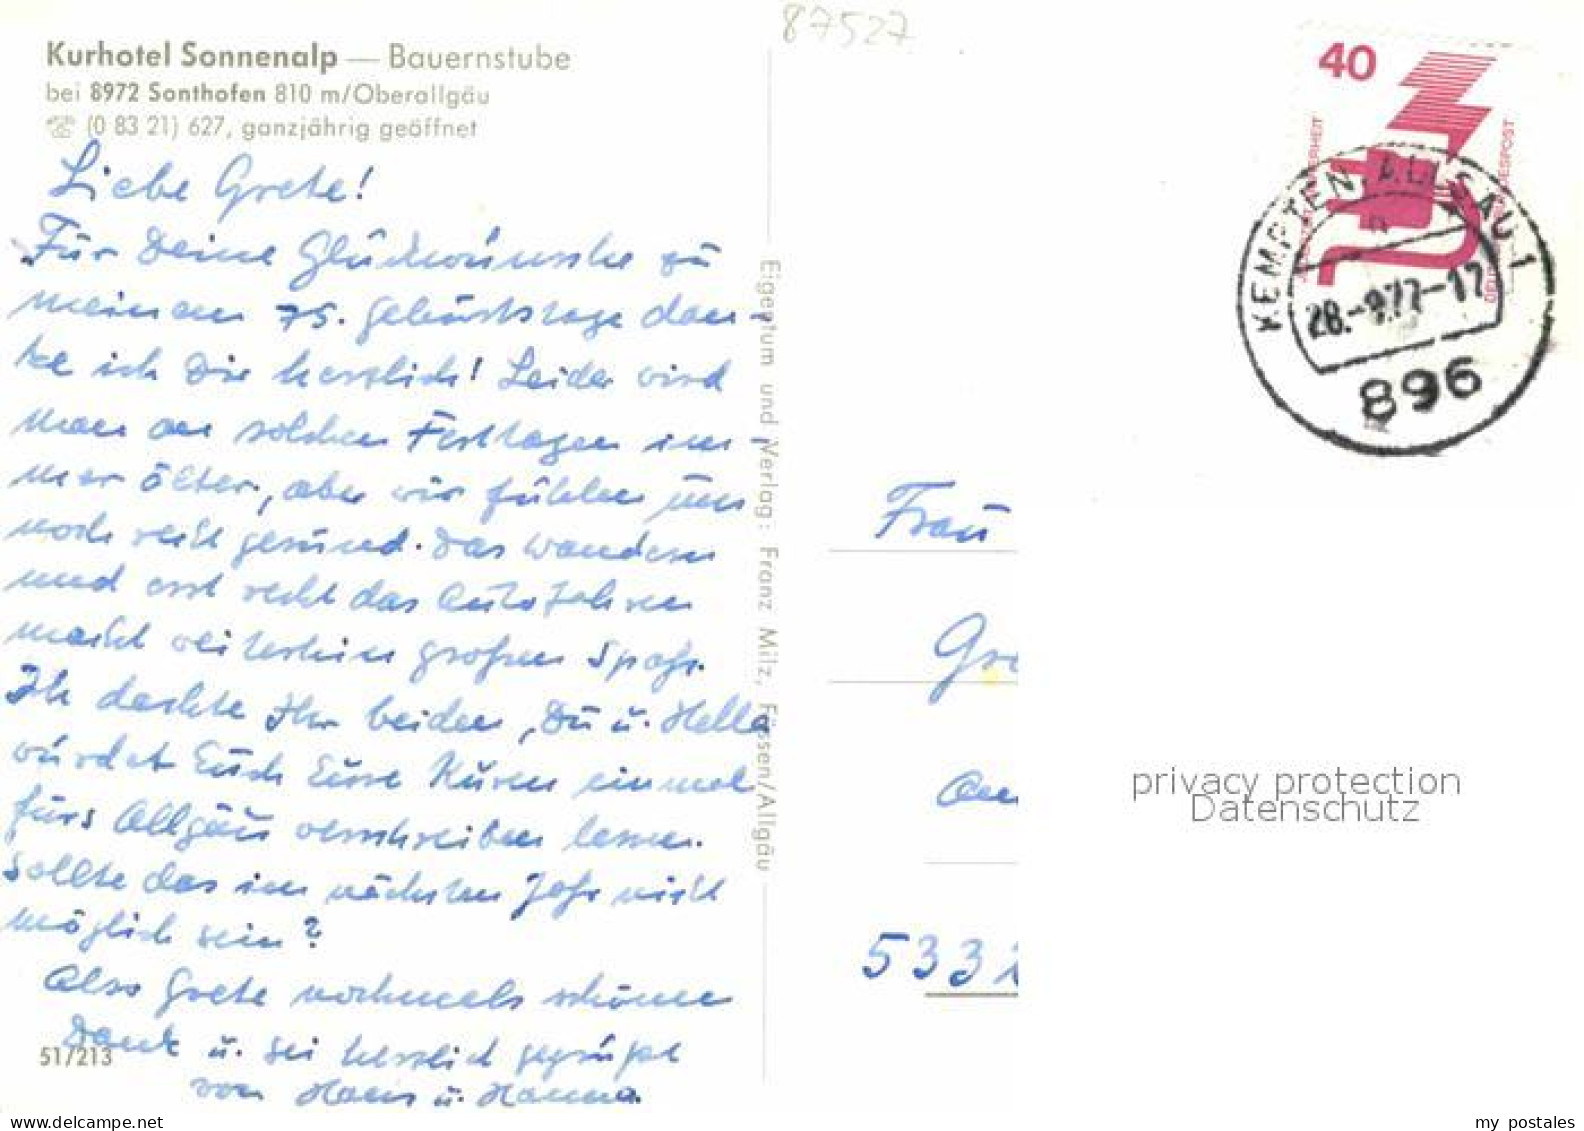 87527
Kurhotel Sonnenalp — Bauernstube
bei 8972 Sonthofen 810 m/Oberallgäu
☏ (0 83 21) 627, ganzjährig geöffnet
Liebe Grete!
Für Deine Glückwünsche zu
meinem 75. Geburtstage dan-
ke ich Dir herzlich! Leider wird
man an solchen Festtagen im-
mer älter, aber wir fühlen uns
noch recht gesund. Das Wandern
und erst recht das Autofahren
macht weiterhin großen Spaß.
Ich dachte Ihr beiden, Du u. Hella
würdet Euch Eure Kuren einmal
fürs Allgäu verschreiben lassen.
Sollte das im nächsten Jahr nicht
möglich sein?
Also Grete nochmals schönen
Dank u. sei herzlich gegrüßt
von Hans u. Hanna.
51/213
Eigentum und Verlag: Franz Milz, Füssen/Allgäu
40
DEUTSCHE BUNDESPOST
KEMPTEN, ALLGÄU 1
28.-9.77-17
896
Frau
533
privacy protection
Datenschutz
www.delcampe.net
my postales